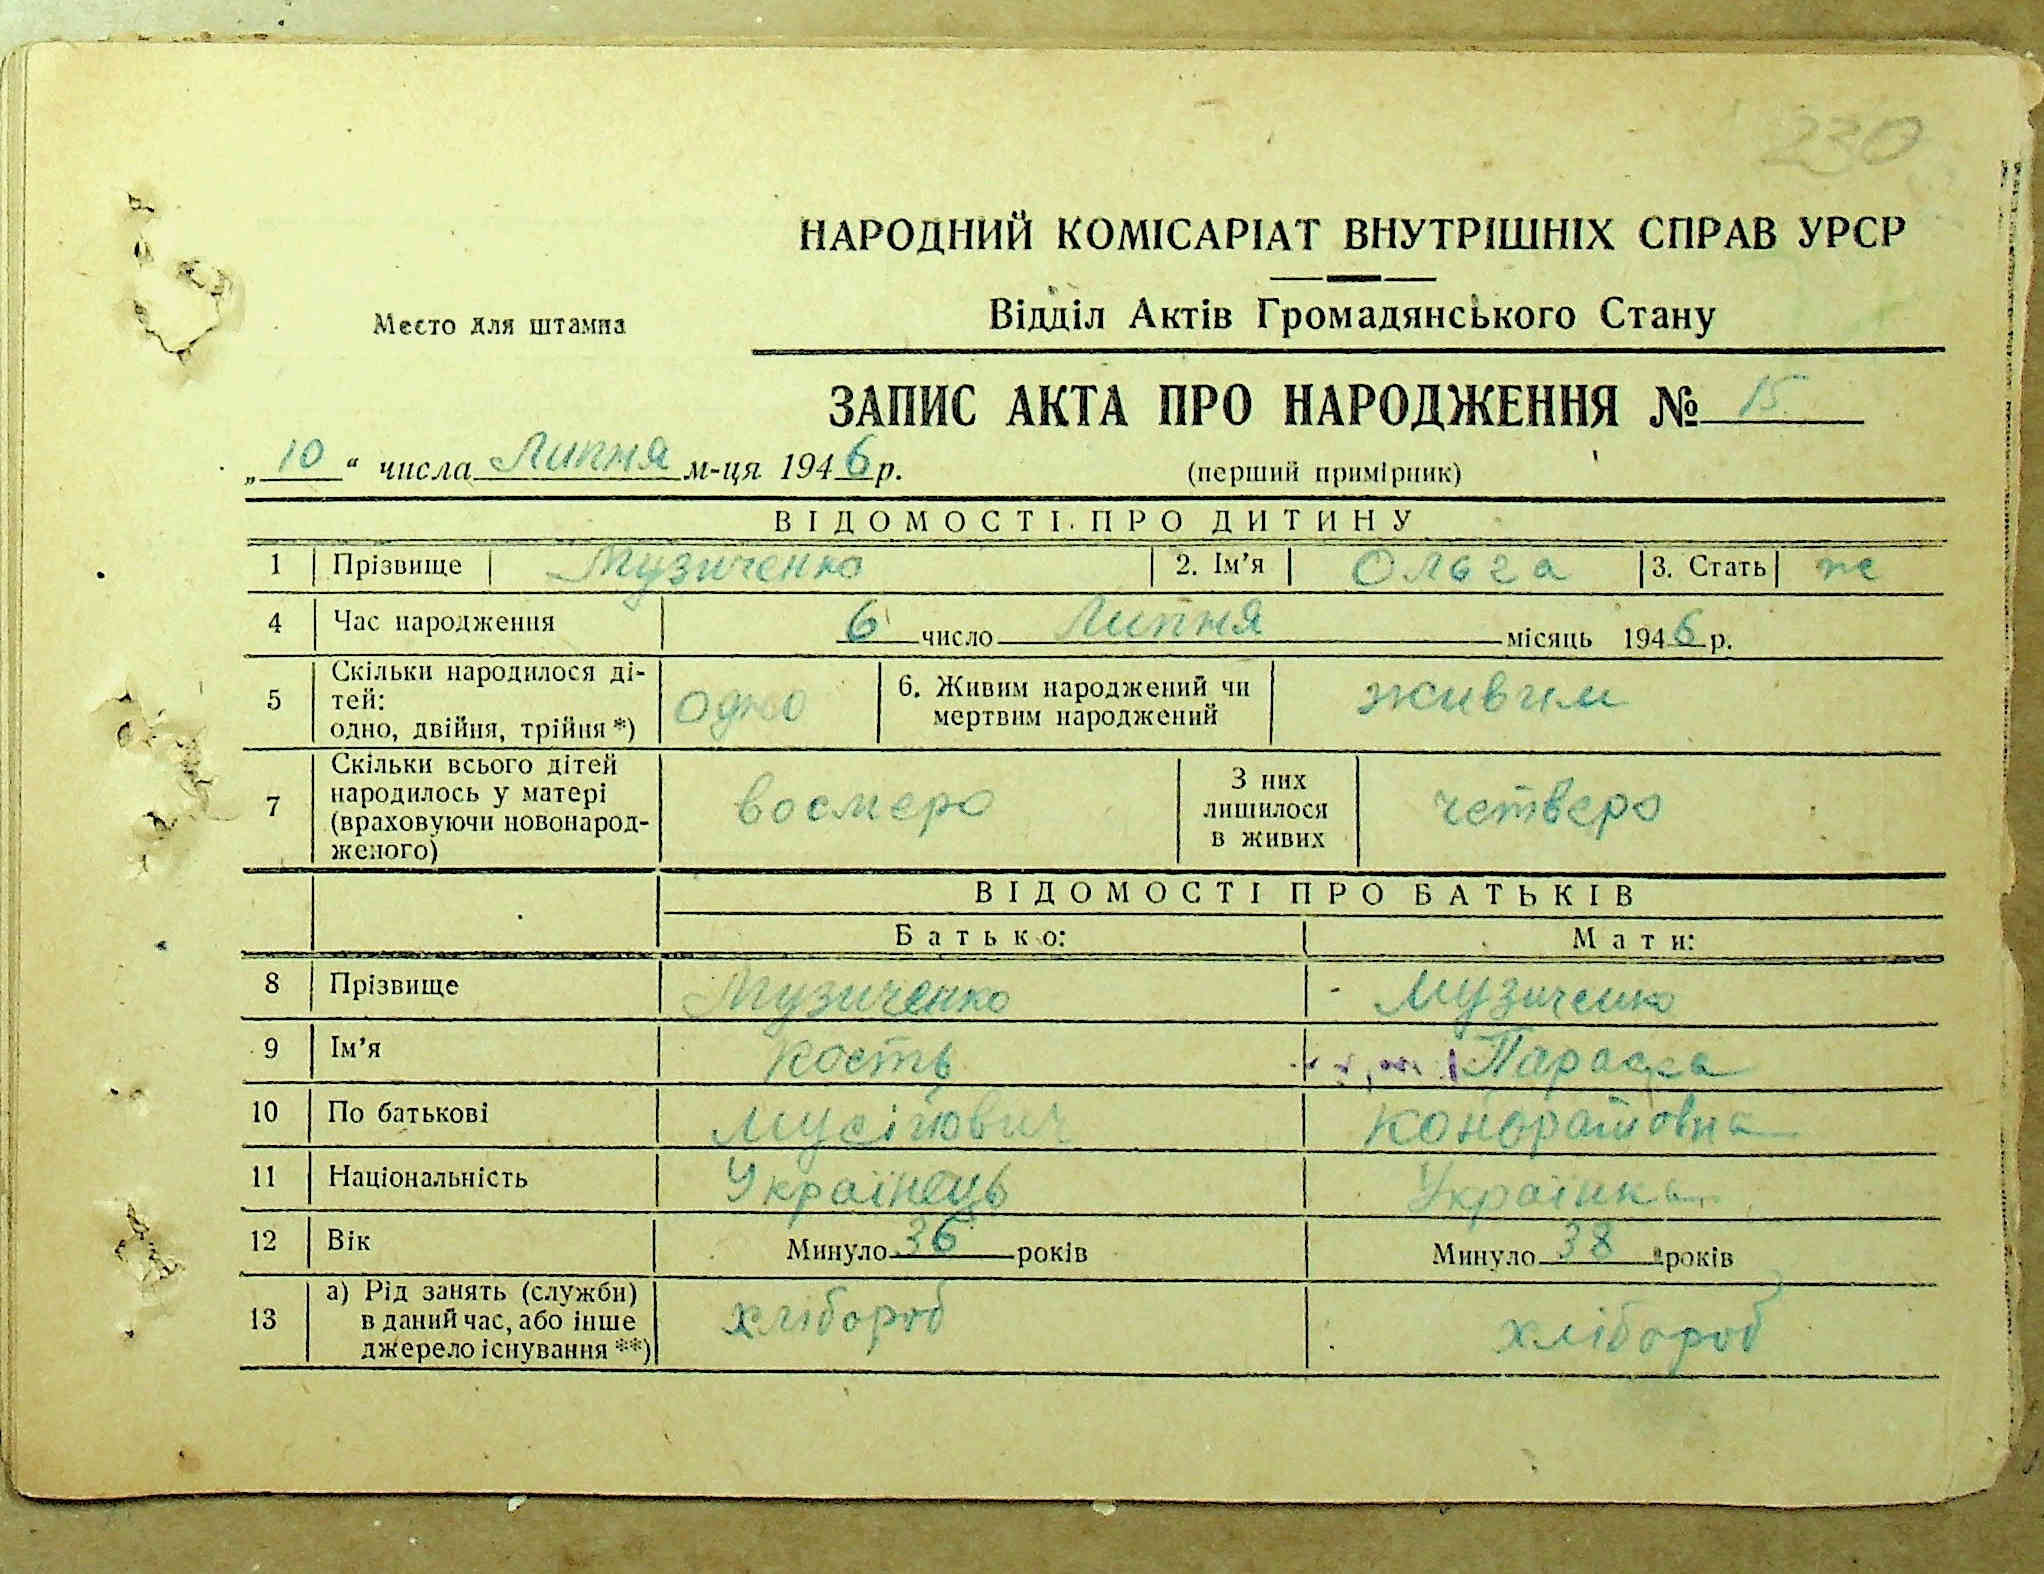 230
НАРОДНИЙ КОМІСАРІАТ ВНУТРІШНІХ СПРАВ УРСР
Место для штампа
Відділ Актів Громадянського Стану
ЗАПИС АКТА ПРО НАРОДЖЕННЯ № 15
„10“ числа Липня м-ця 1946 р.
(перший примірник)
ВІДОМОСТІ ПРО ДИТИНУ
1 Прізвище Музиченко 2. Ім’я Ольга 3. Стать ж
4 Час народження 6 число Липня місяць 1946 р.
5 Скільки народилося ді-
тей:
одно, двійня, трійня *) одно 6. Живим народжений чи
мертвим народжений живим
7 Скільки всього дітей
народилось у матері
(враховуючи новонарод-
женого) восмеро З них
лишилося
в живих четверо
ВІДОМОСТІ ПРО БАТЬКІВ
Батько: Мати:
8 Прізвище Музиченко Музиченко
9 Ім’я Кость Параска
10 По батькові Мусійович Кондратовна
11 Національність Українець Українка
12 Вік Минуло 36 років Минуло 38 років
13 а) Рід занять (служби)
в даний час, або інше
джерело існування **) хлібороб хлібороб